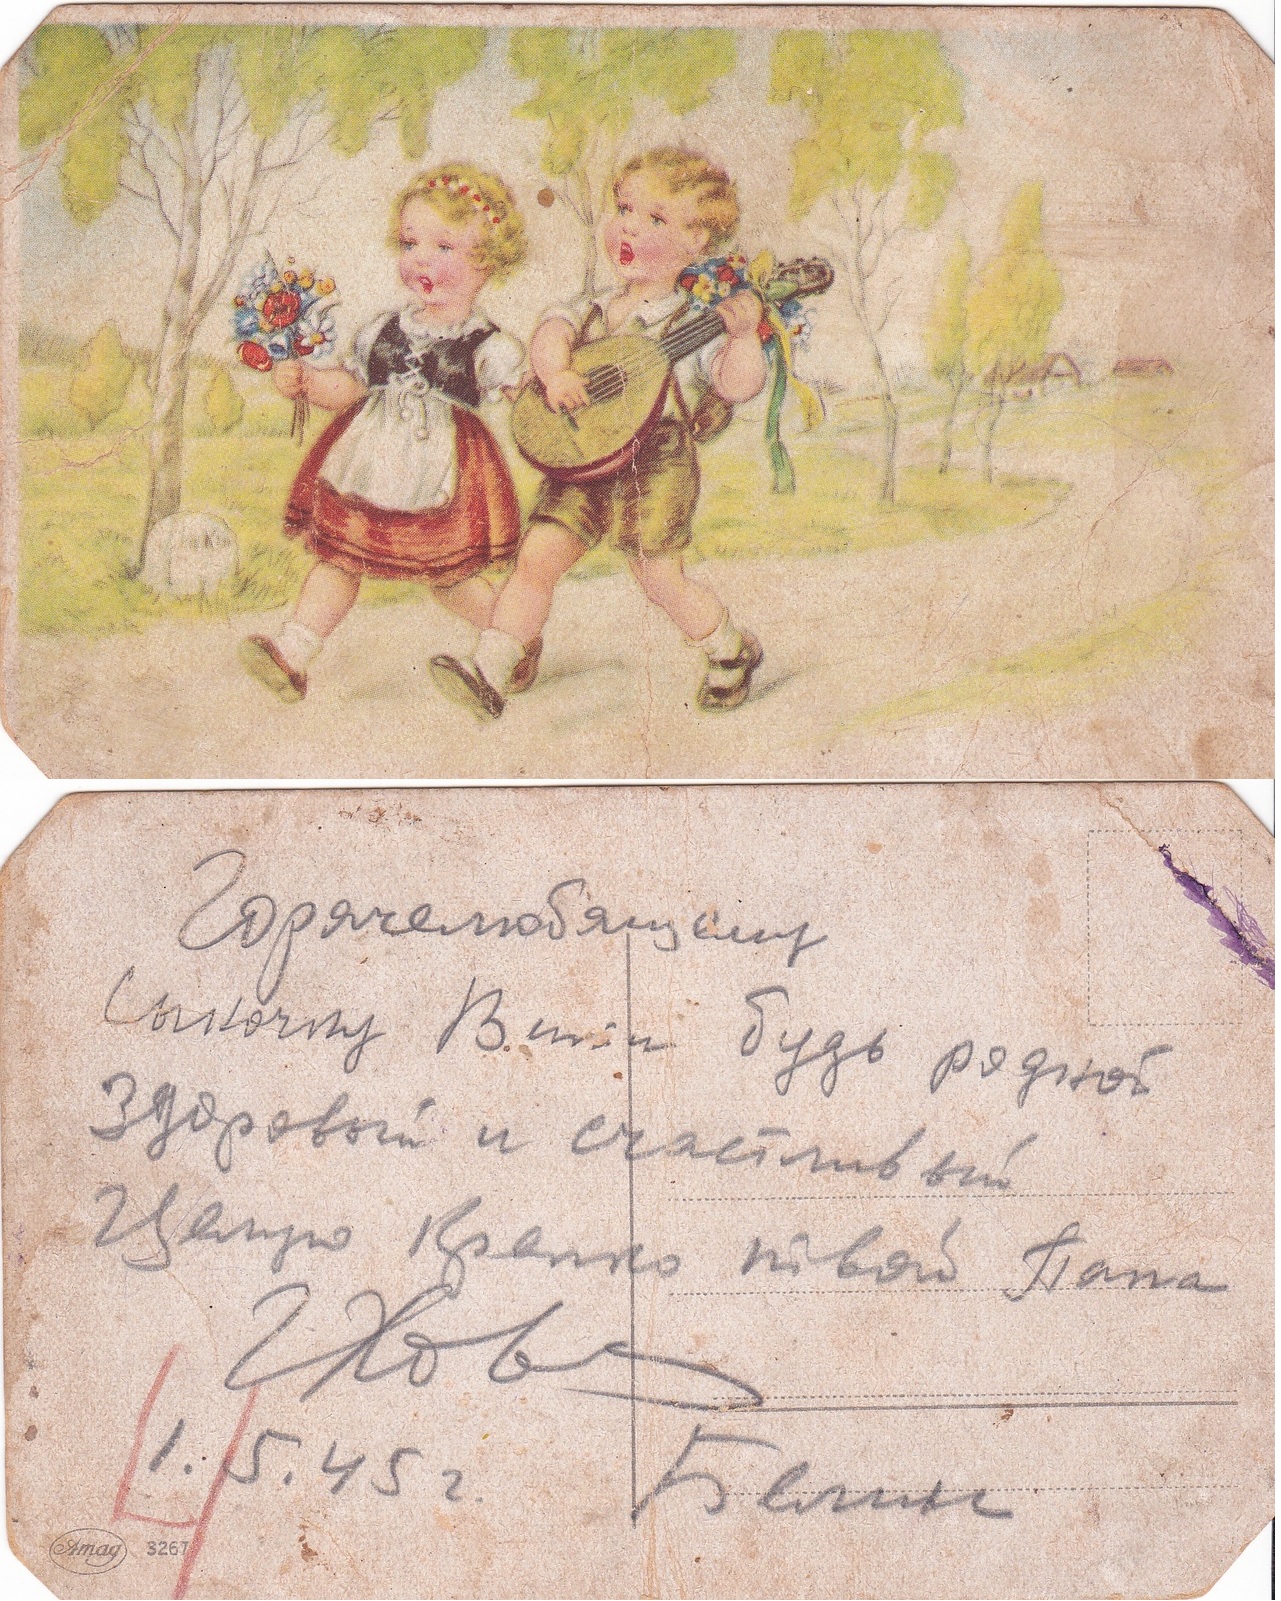 Горячелюбящему
Сыночку Вити будь родной
Здоровый и счастливый
Целую Крепко твой Папа
1.5.45 г.
Белин
Amag 3267